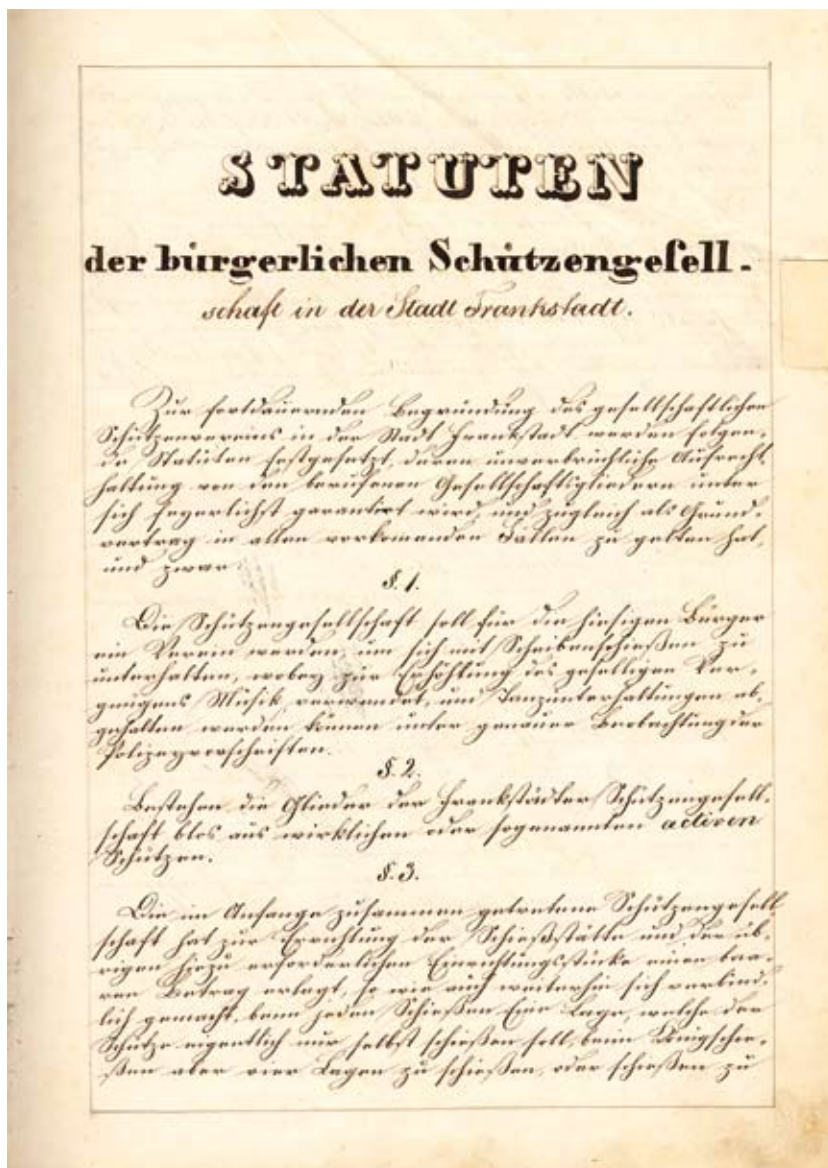 STATUTEN
der bürgerlichen Schützengesell-
schaft in der Stadt Frankstadt.
Zur fortdauernden Begründung des gesellschaftlichen
Schützenvereins in der Stadt Frankstadt werden folgen-
de Statuten festgesetzt, deren unverbrüchliche Aufrecht-
haltung von den berufenen Gesellschaftsgliedern unter
sich feyerlichst garantirt wird, und zugleich als Grund-
vertrag in allen vorkomanden Fällen zu gelten hat,
und zwar:
§. 1.
Die Schützengesellschaft soll für die hiesigen Bürger
ein Verein werden, um sich mit Scheibenschießen zu
unterhalten, wobey zur Erhöhung des geselligen Ver-
gnügens Musik verwendet, und Tanzunterhaltungen ab-
gehalten werden können unter genauer Beobachtung der
Polizeyvorschriften.
§. 2.
Bestehen die Glieder der Frankstädter Schützengesell-
schaft blos aus wirklichen oder sogenannten activen
Schützen.
§. 3.
Die im Anfange zusammen getretene Schützengesell
schaft hat zur Errichtung der Schießstätte und der üb-
rigen hiezu erforderlichen Einrichtungsstücke einen baa-
ren Betrag erlegt, so wie auch weiterhin sich verbind-
lich gemacht, beym jeden Schießen Eine Lage, welche der
Schütze eigentlich nur selbst schießen soll, beim Königschie-
ßen aber vier Lagen zu schießen, oder schießen zu